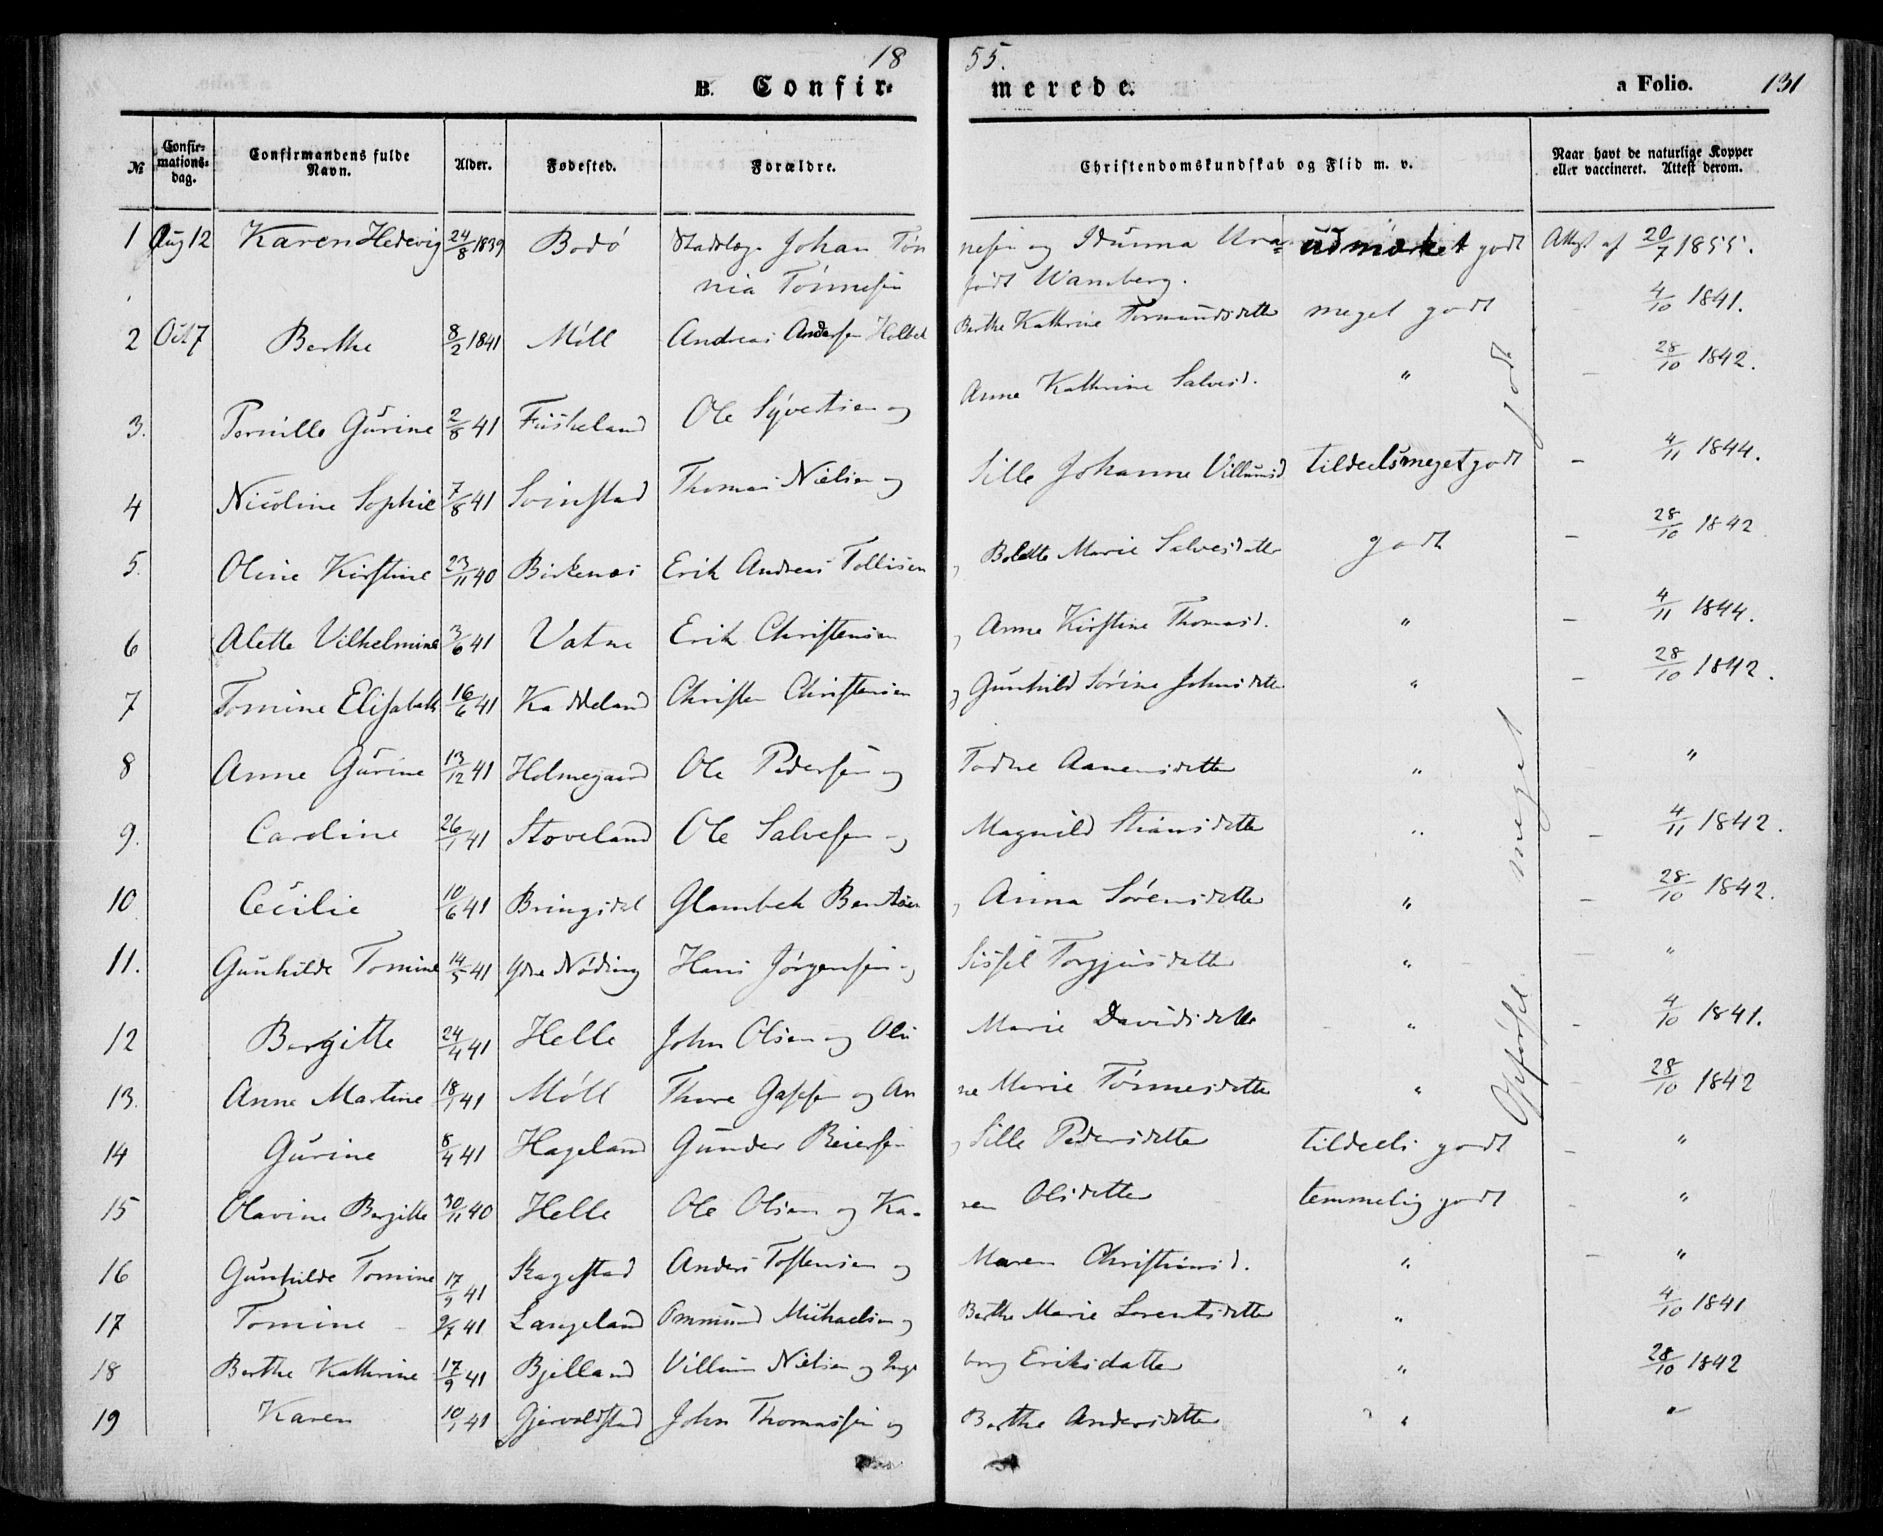 18 55.
B. Confir- merede. a Folio. 131
№ Confir-mations-dag. Confirmandens fulde Navn. Alder. Fødested. Forældre. Christendomskundskab og Flid m. v. Naar havt de naturlige Kopper eller vaccineret. Attest derom.
1 Aug 12 Karen Hedevig 24/8 1839 Bodö Johan Tön nesen og Idunna Ura= udmærket godt Attest af 20/7 1855.
nia Tönnesen født Wamberg.
2 Oct 7 Berthe 8/2 1841 Möll Andreas Andersen Berthe Kathrine Tormundsdatter meget godt 4/10 1841.
3. Pernille Gurine 2/8 41 Fuskeland Ole Syvertsen og Anne Kathrine Salvesd. " – 28/10 1842.
4 Nicoline Sophie 7/8 41 Svinstad Thomas Nielsen og Sille Johanne Villumsd tildeels meget godt – 4/11 1844.
5. Oline Kirstine 23/11 40 Birkenes Erik Andreas Tollisen , Bolette Marie Salvesdatter godt – 28/10 1842
6 Alette Vilhelmine 3/6 41 Vatne Erik Christensen , Anne Kirstine Thomasd. " – 4/11 1844.
7 Tomine Elisabeth 16/6 41 Kaddeland Christen Christensen , Gunhild Sörine Johnsdatter " – 28/10 1842.
8 Anne Gurine 13/12 41 Holmegaard Ole Pedersen og Todne Aanensdatter " – "
9. Caroline 26/1 41 Stoveland Ole Salvesen og Magnild Stiansdatter " – 4/11 1842.
10 Cecilie 10/6 41 Bringsdal Glambek Bentsen , Anna Sörensdatter " – 28/10 1842.
11. Gunhilde Tomine 14/5 41 Ydre Nöding Hans Jörgensen og Sissel Torgjusdatter " – "
12 Bergitte 24/4 41 Helle John Olsen og Oli Marie Davidsdatter " – 4/10 1841.
13. Anne Martine 18/1 41 Möll Thore og An ne Marie Tönnesdatter " – 28/10 1842
14 Gurine 8/4 41 Hageland Gunder Reiersen , Sille Pedersdatter tildeels godt – "
15 Olavine Bergitte 30/11 40 Helle Ole Olsen og Ka- ren Olsdatter temmelig godt – "
16 Gunhilde Tomine 17/9 41 Skagestad Anders Tostensen og Maren Christensd. " – "
17 Tomine – 9/7 41 Langeland Ommund Michaelsen og Berthe Marie Lorentsdatter " 4/10 1841
18 Berthe Kathrine 17/9 41 Bjelland Villum Nielsen og Inge borg Eriksdatter " 28/10 1842
19 Karen 10/1 41 Gjervoldstad John Thomassen og Berthe Andersdatter " "
Opförsel meget godt